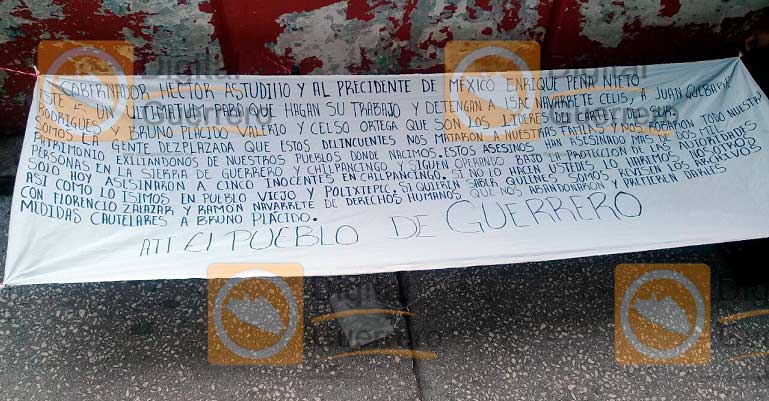 GOBERNADOR HECTOR ASTUDILLO Y AL PRECIDENTE DE MEXICO ENRIQUE PEÑA NIETO
ESTE ES UN ULTIMATUM PARA QUE HAGAN SU TRABAJO Y DETENGAN A ISAC NAVARRETE CELIS, A JUAN
RODRIGUES Y BRUNO PLACIDO VALERIO Y CELSO ORTEGA QUE SON LOS LIDERES DEL CARTEL DEL SUR.
SOMOS LA GENTE DEZPLAZADA QUE ESTOS DELINCUENTES NOS MATARON A NUESTRAS Y NOS ROBARON TODO NUESTRO
PATRIMONIO EXILIANDONOS DE NUESTROS PUEBLOS DONDE NACIMOS. ESTOS ASESINOS HAN ASESINADO MAS DE DOS MIL
PERSONAS EN LA SIERRA DE GUERRERO Y CHILPANCINGO Y SIGUEN OPERANDO BAJO LA PROTECCION DE LAS AUTORIDADES
SOLO HOY ASESINARON A CINCO INOCENTES EN CHILPANCINGO. SI NO LO HACEN USTEDES LO HAREMOS NOSOTROS
ASI COMO LO ISIMOS EN PUEBLO VIEJO Y POLIXTEPEC. SI QUIEREN SABER QUIENES SOMOS REVISEN LOS ARCHIVOS
CON FLORENCIO ZALAZAR Y RAMON NAVARRETE DE DERECHOS HUMANOS QUE NOS ABANDONARON Y PREFIEREN DARLES
MEDIDAS CAUTELARES A BRUNO PLACIDO.
ATT El PUEBLO DE GUERRERO
Digital
Guerrero
Digital
Guerrero
Digital
Guerrero
Digital
Guerrero